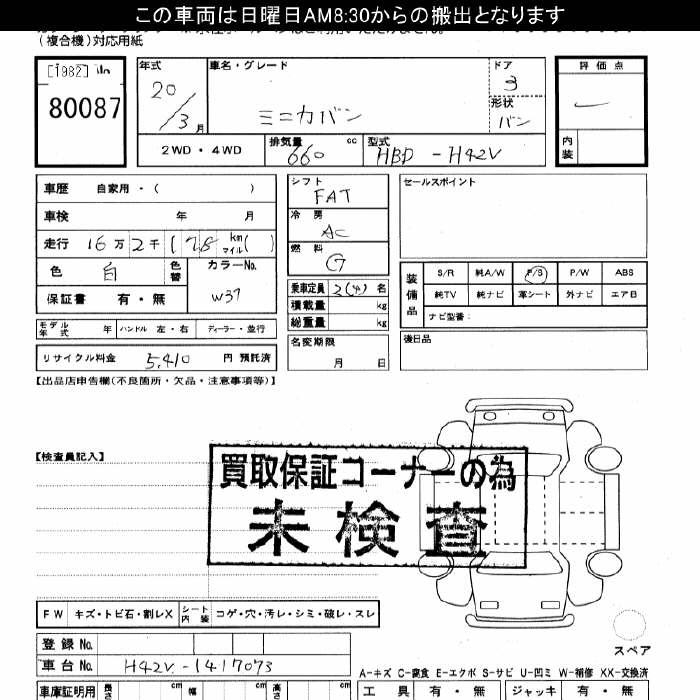 この車両は日曜日AM8:30からの搬出となります
(複合機)対応用紙
[1982]
80087
年式 20/3月
車名・グレード ミニカバン
ドア 3
形状 バン
評価点 —
内装
2WD・4WD
排気量 660 cc
型式 HBD-H42V
車歴 自家用・( )
車検 年 月
走行 16万2千178 km マイル( )
色 白 色替
カラーNo. W37
保証書 有・無
シフト FAT
冷房 AC
燃料 G
乗車定員 2(4)名
積載量 kg
総重量 kg
名変期限 月 日
セールスポイント
装備品
S/R 純A/W P/S P/W ABS
純TV 純ナビ 革シート 外ナビ エアB
ナビ型番:
後日品
モデル年式 年 ハンドル 左・右 ディーラー・並行
リサイクル料金 5,410 円 預託済
【出品店申告欄(不良箇所・欠品・注意事項等)】
【検査員記入】
買取保証コーナーの為
未検査
FW キズ・トビ石・割レX シート内装 コゲ・穴・汚レ・シミ・破レ・スレ
登録No.
車台No. H42V-1417073
スペア
A-キズ C-腐食 E-エクボ S-サビ U-凹ミ W-補修 XX-交換済
車庫証明用 長さ cm 幅 cm 高さ cm
工具 有・無 ジャッキ 有・無